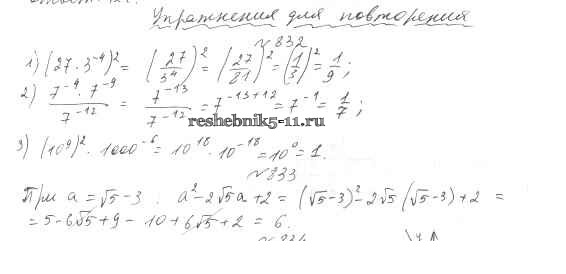 Упражнения для повторения
№832
1) (27 · 3⁻⁴)² = (27/3⁴)² = (27/81)² = (1/3)² = 1/9;
2) 7⁻⁴ · 7⁻⁹ / 7⁻¹² = 7⁻¹³ / 7⁻¹² = 7⁻¹³⁺¹² = 7⁻¹ = 1/7;
reshebnik5-11.ru
3) (10⁹)² · 1000⁻⁶ = 10¹⁸ · 10⁻¹⁸ = 10⁰ = 1.
№833
При a = √5 - 3 : a² - 2√5a + 2 = (√5 - 3)² - 2√5 (√5 - 3) + 2 =
= 5 - 6√5 + 9 - 10 + 6√5 + 2 = 6.